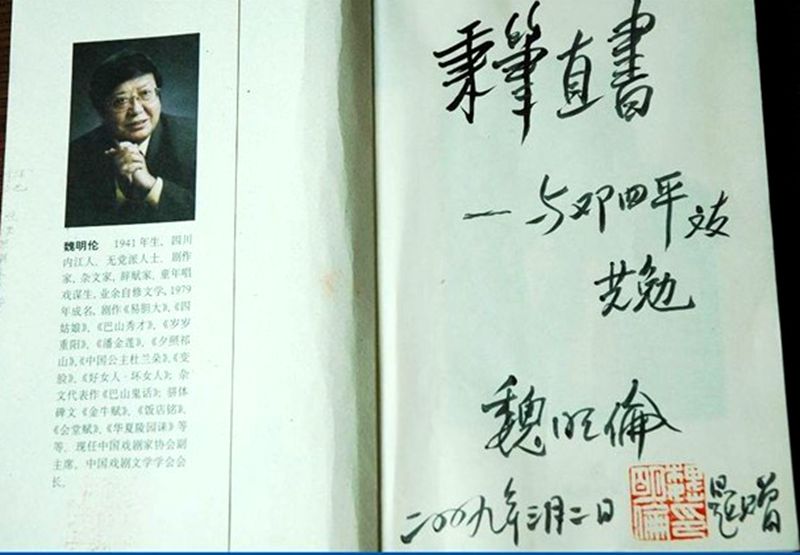 魏明伦 1941年生，四川
内江人。无党派人士。剧作
家，杂文家，辞赋家。童年唱
戏谋生，业余自修文学，1979
年成名，剧作《易胆大》、《四
姑娘》、《巴山秀才》、《岁岁
重阳》、《潘金莲》、《夕照祁
山》、《中国公主杜兰朵》、《变
脸》、《好女人·坏女人》；杂
文代表作《巴山鬼话》；骈体
碑文《金牛赋》、《饭店铭》、
《会堂赋》、《华夏陵园诔》等
等。现任中国戏剧家协会副
主席，中国戏剧文学学会会
长。
秉筆直書
—与邓四平友
共勉
魏明倫
二00九年三月二日 题赠
魏明倫印